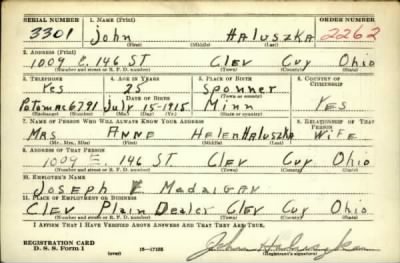 SERIAL NUMBER 1. NAME (Print) ORDER NUMBER
3301 John HALUSZKA 2262
(First) (Middle) (Last)
2. ADDRESS (Print)
1009 E. 146 ST Clev Cuy Ohio
(Number and street or R. F. D. number) (Town) (County) (State)
3. TELEPHONE 4. AGE IN YEARS 5. PLACE OF BIRTH 6. COUNTRY OF CITIZENSHIP
Yes 25 Sponner
DATE OF BIRTH (Town or county)
Potomac 6791 July 15-1915 Minn YES
(Mo.) (Day) (Yr.) (State or country)
7. NAME OF PERSON WHO WILL ALWAYS KNOW YOUR ADDRESS 8. RELATIONSHIP OF THAT PERSON
MRS ANNE Helen Haluszka WiFE
(Mr., Mrs., Miss) (First) (Middle) (Last)
9. ADDRESS OF THAT PERSON
1009 E. 146 ST Clev Cuy Ohio
(Number and street or R. F. D. number) (Town) (County) (State)
10. EMPLOYER'S NAME
JOSEPH
11. PLACE OF EMPLOYMENT OR BUSINESS
Clev Plain Dealer Clev Cuy Ohio
(Number and street or R. F. D. number) (Town) (County) (State)
I AFFIRM THAT I HAVE VERIFIED ABOVE ANSWERS AND THAT THEY ARE TRUE.
REGISTRATION CARD
D. S. S. Form 1 (over) John Haluszka